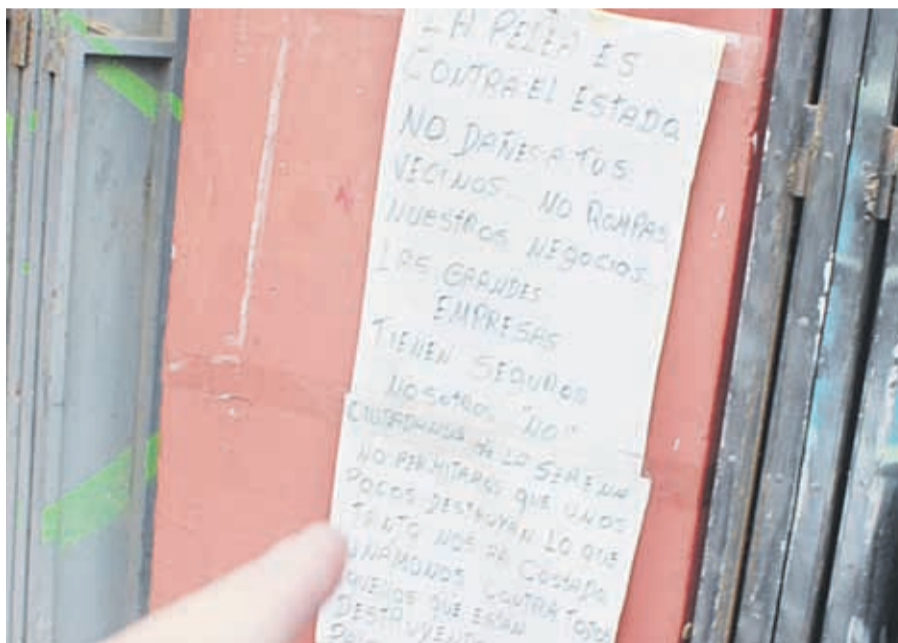 LA PELEA ES
CONTRA EL ESTADO
NO DAÑES A TUS
VECINOS... NO ROMPAS
NUESTROS NEGOCIOS...
LAS GRANDES
EMPRESAS
TIENEN SEGUROS
NOSOTROS "NO"
CIUDADANOS DE LA SERENA
NO PERMITAMOS QUE UNOS
POCOS DESTRUYAN LO QUE
TANTO NOS HA COSTADO
UNAMONOS CONTRA TODOS
QUE ESTAN
DESTRUYENDO